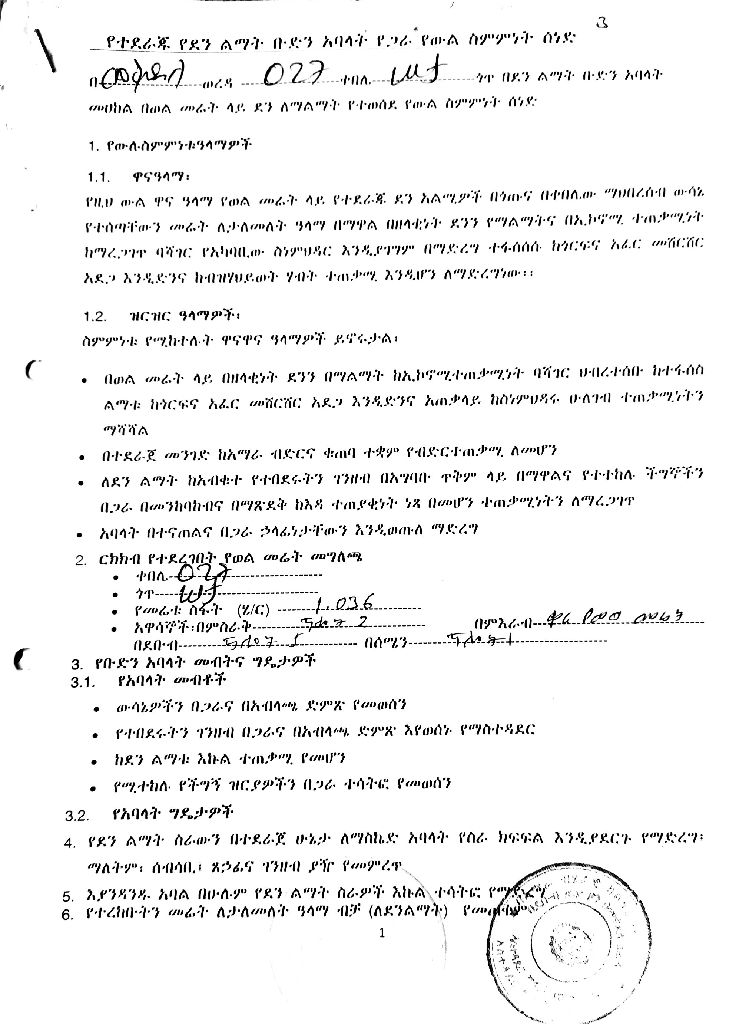 የተደራጁ የደን ልማት ቡድን አባላት የጋራ የውል ስምምነት ሰነድ
በ ወረዳ 027 ተበሌ ጎጥ በደን ልማት ቡድን አባላት
መሀከል በወል መሬት ላይ ደን ለማልማት የተወሰደ የውል ስምምነት ሰነድ
1. የውሉስምምነቱዓላማዎች
1.1. ዋናዓላማ፡
የዚህ ውል ዋና ዓላማ የወል መሬት ላይ የተደራጁ ደን አልሚዎች በጎጡና በተበሌው ማህበረሰብ ውሳኔ
የተሰጣቸውን መሬት ለታለመለት ዓላማ በማዋል በዘላቂነት ደንን የማልማትና በኢኮኖሚ ተጠቃሚነት
ከማረጋገጥ ባሻገር የአካባቢው ስነምህዳር እንዲያገግም በማድረግ ተፋሰሰሱ ከጎርፍና አፈር መሸርሸር
አደጋ እንዲድንና ከብዝሃህይወት ሃብት ተጠቃሚ እንዲሆን ለማድረግነው፡፡
1.2. ዝርዝር ዓላማዎች፡
ስምምነቱ የሚከተሉት ዋናዋና ዓላማዎች ይኖሩታል፡
• በወል መሬት ላይ በዘላቂነት ደንን በማልማት ከኢኮኖሚተጠቃሚነት ባሻገር ህብረተሰቡ ከተፋሰስ
ልማቱ ከጎርፍና አፈር መሸርሸር አደጋ እንዲድንና አጠቃላይ ከስነምህዳሩ ሁለገብ ተጠቃሚነትን
ማሻሻል
• በተደራጀ መንገድ ከአማራ ብድርና ቁጠባ ተቋም የብድርተጠቃሚ ለመሆን
• ለደን ልማት ከአብቁተ የተበደሩትን ገንዘብ በአግባቡ ጥቅም ላይ በማዋልና የተተከሉ ችግኞችን
በጋራ በመንከባከብና በማጽደቅ ከእዳ ተጠያቂነት ነጻ በመሆን ተጠቃሚነትን ለማረጋገጥ
• አባላት በተናጠልና በጋራ ኃላፊነታቸውን እንዲወጡ ማድረግ
2. ርክክብ የተደረገበት የወል መሬት መግለጫ
• ተበሌ 027
• ጎጥ
• የመሬቱ ስፋት (ሄ/ር) 1.036
• አዋሳኞች፡በምስራት 2 በምእራብ
በደቡብ በሰሜን
3. የቡድን አባላት መብትና ግዴታዎች
3.1. የአባላት መብቶች
• ውሳኔዎችን በጋራና በአብላጫ ድምጽ የመወሰን
• የተበደሩትን ገንዘብ በጋራና በአብላጫ ድምጽ እየወሰኑ የማስተዳደር
• ከደን ልማቱ እኩል ተጠቃሚ የመሆን
• የሚተከሉ የችግኝ ዝርያዎችን በጋራ ተሳትፎ የመወሰን
3.2. የአባላት ግዴታዎች
4. የደን ልማት ስራውን በተደራጀ ሁኔታ ለማስኬድ አባላት የስራ ክፍፍል እንዲያደርጉ የማድረግ፡
ማለትም፡ ሰብሳቢ፡ ጸኃፊና ገንዘብ ያዥ የመምረጥ
5. እያንዳንዱ አባል በሁሉም የደን ልማት ስራዎች እኩል ተሳትፎ የማድረግ
6. የተረከቡትን መሬት ለታለመለት ዓላማ ብቻ (ለደንልማት)
1